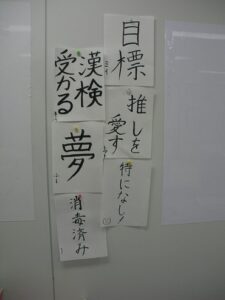 目標
推しを
愛す
特になし!
漢検
受かる
夢
消毒済み